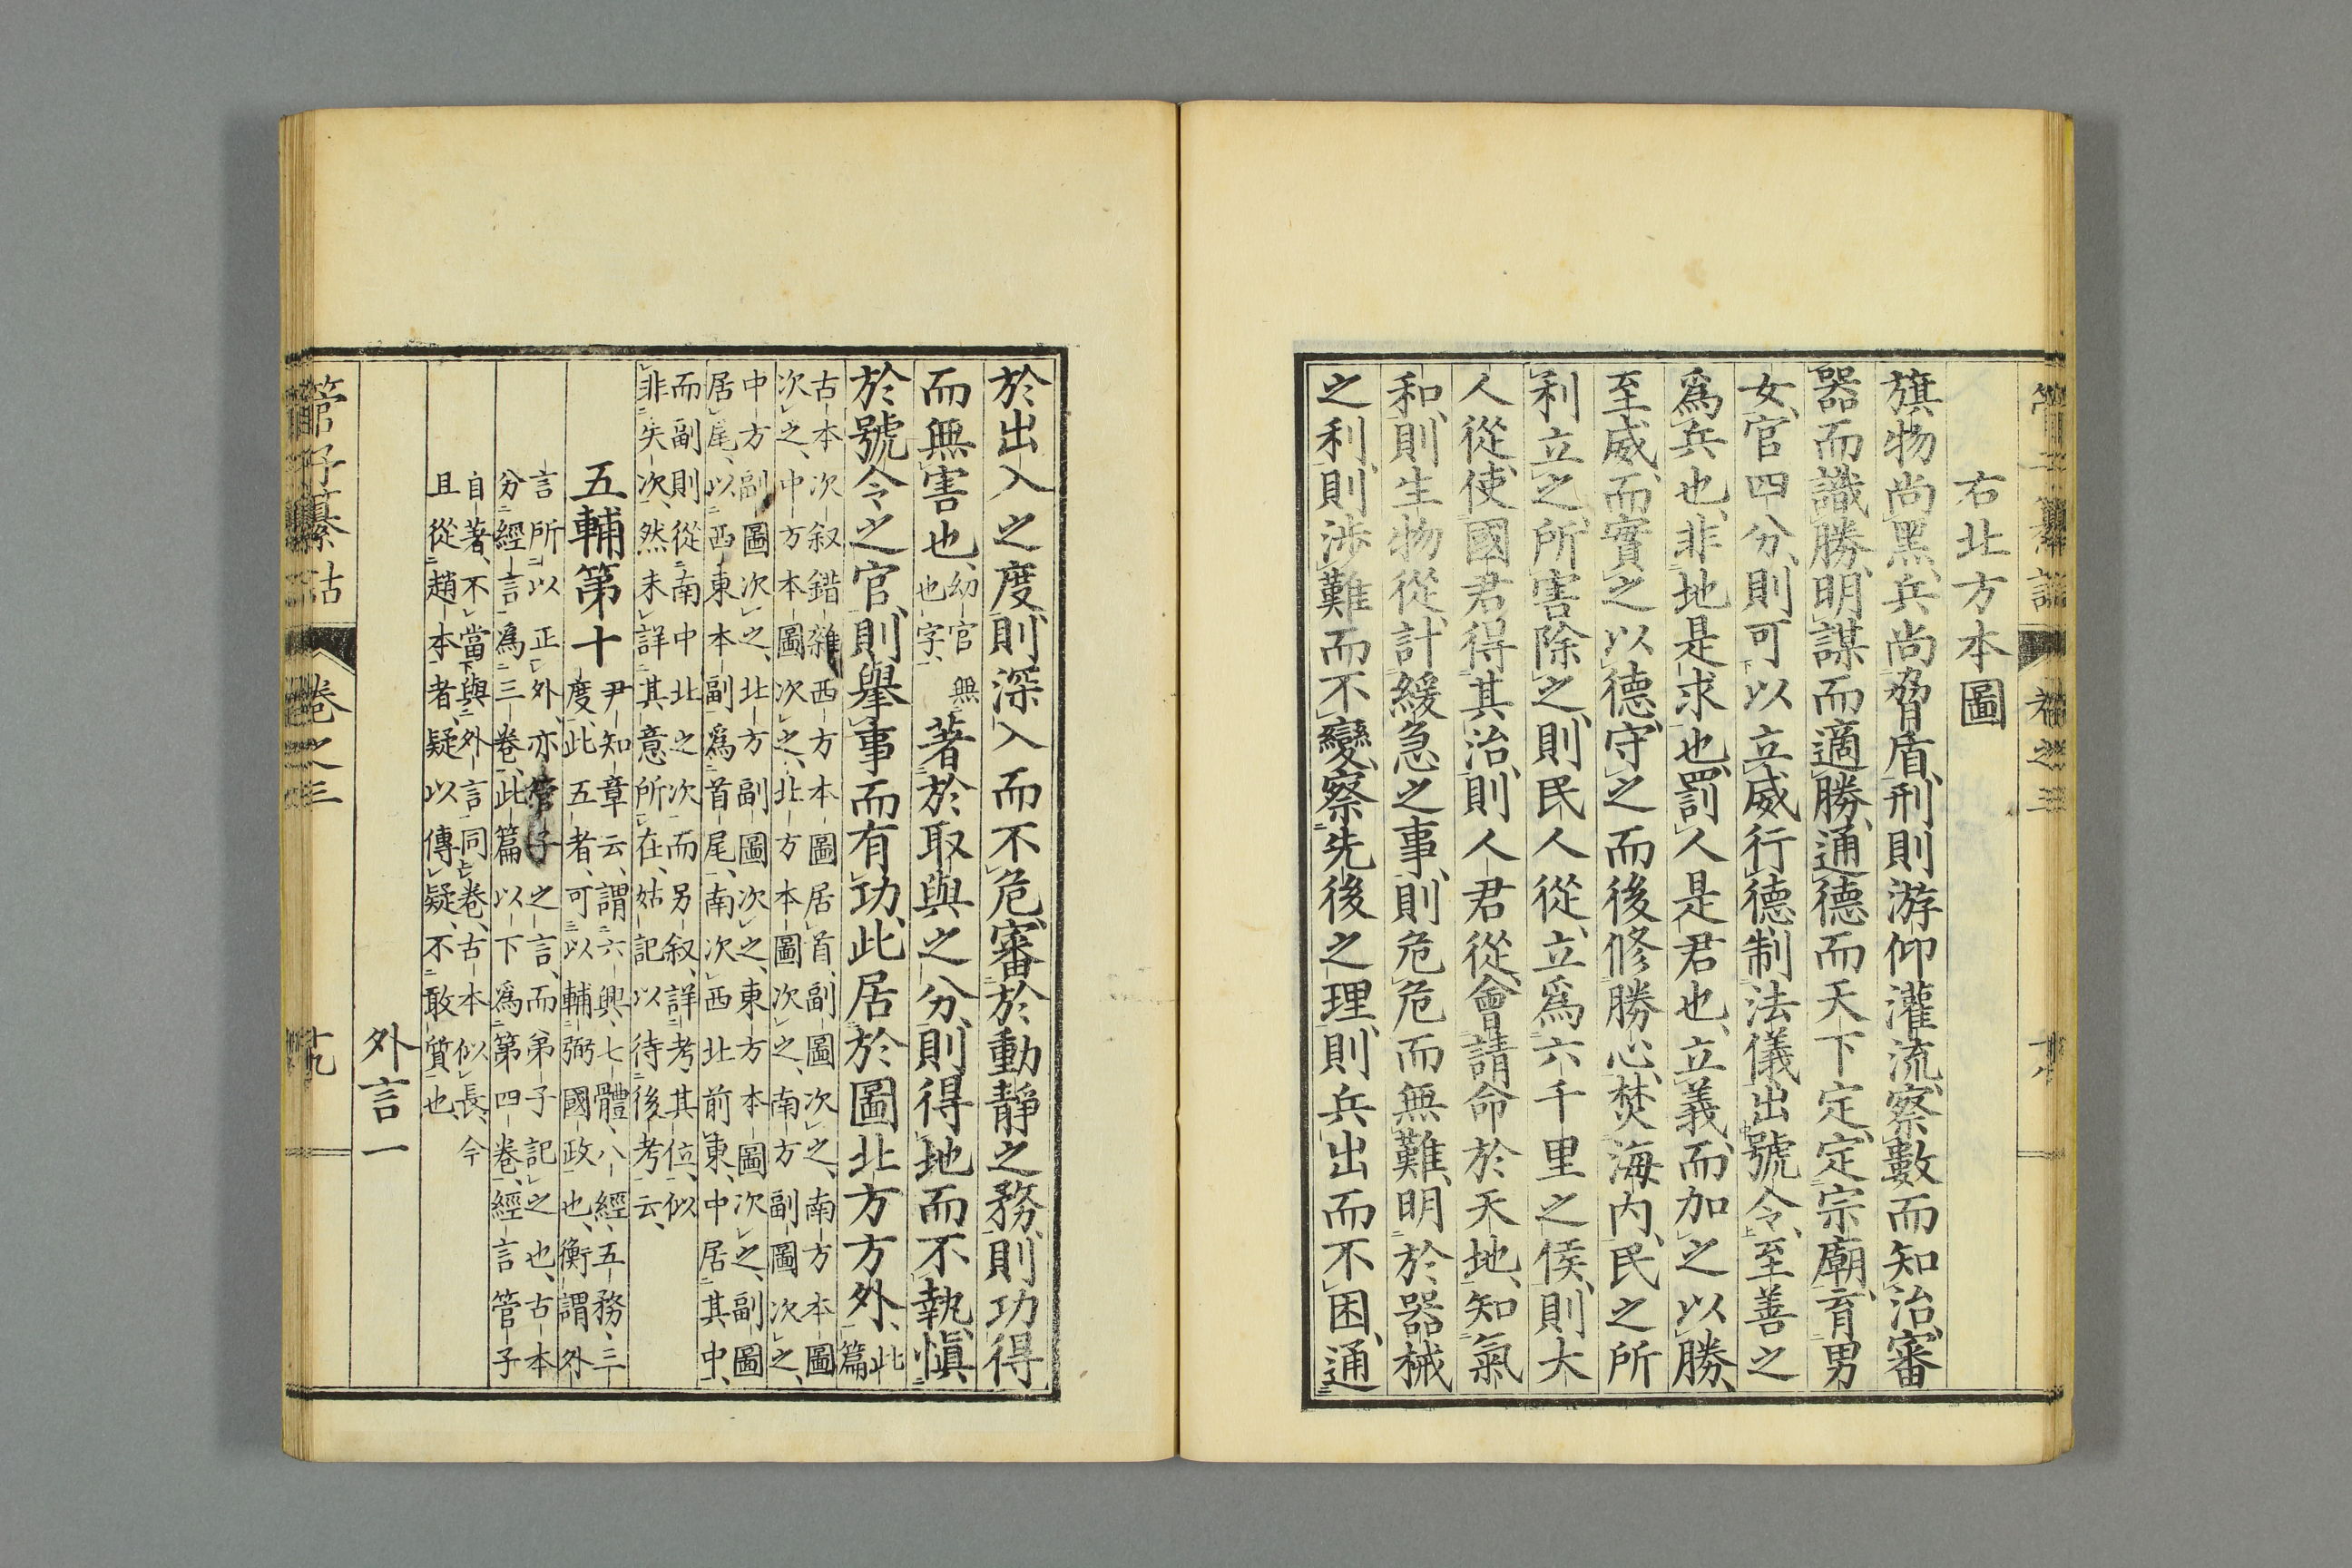 右北方本圖
旗物尚黑、兵尚脅盾、刑則游仰灌流、察數而知治、審
器而識勝、明謀而適勝、通德而天下定、定宗廟、育男
女、官四分、則可以立威行德、制法儀、出號令、至善之
爲兵也、非地是求也、罰人是君也、立義而加之以勝、
至威而實之以德、守之而後修勝心、焚海内、民之所
利立之、所害除之、則民人從、立爲六千里之侯、則大
人從、使國君得其治、則人君從、會請命於天地、知氣
和、則生物從、計緩急之事、則危危而無難、明於器械
之利、則涉難而不變、察先後之理、則兵出而不困、通
於出入之度、則深入而不危、審於動靜之務、則功得
而無害也、幼官無
也字、著於取與之分、則得地而不執、愼
於號令之官、則舉事而有功、此居於圖北方方外、此
篇
古本次叙錯雜西方本圖居首副圖次之、南方本圖
次之、中方本圖次之、北方本圖次之、南方副圖次之、
中方副圖次之、北方副圖次之、東方本圖次之、副圖
居尾、以西東本副爲首尾、南次西北前東、中居其中、
而副則從南中北之次而另叙、詳考其位、似
非失次、然未詳其意所在、姑記以待後考云、
五輔第十
尹知章云、謂六興、七體、八經、五務、三
度、此五者、可以輔弼國政也、衡謂外
言所以正外、亦管子之言、而弟子記之也、古本
分經言爲三卷、此篇以下爲第四卷、經言管子
自著、不當與外言同卷、古本似長、今
且從趙本者、疑以傳疑、不敢質也、
外言一
管子纂詁
卷之三